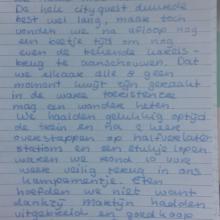 De hele cityquest duurde
best wel lang, maar toch
vonden we na afloop nog
een beetje tijd om nog
even de bekende
brug te aanschouwen. Dat
we elkaar alle 8 geen
moment kwijt zijn geraakt
in de massa toeristen
mag een wonder heten.
We haalden gelukkig optijd
de trein en na 2 keer
overstappen op
station en een stukje lopen
waren we rond 10 uur
weer veilig terug in ons
kampementje. Eten
hoefden we niet want
dankzij Martijn hadden
uitgebreid en goedkoop